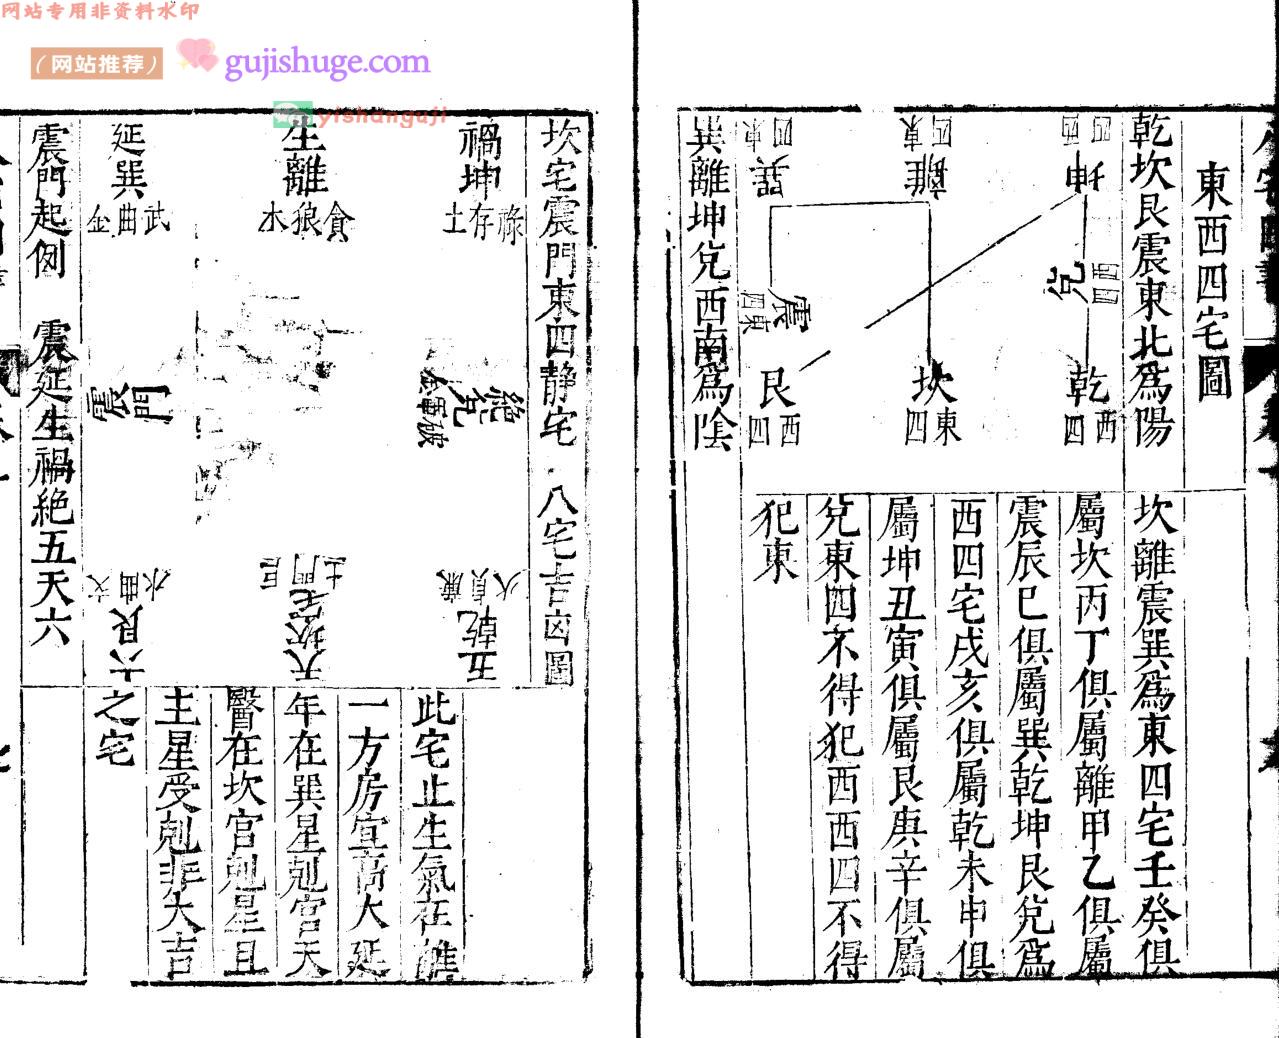 网站专用非资料水印
（网站推荐）
gujishuge.com
yishanguji
東西四宅圖
乾坎艮震東北爲陽
巽離坤兌西南爲陰
坤
四西
離
四東
巽
四東
兌
四西
震
四東
乾
四西
坎
四東
艮
四西
坎離震巽爲東四宅壬癸俱
屬坎丙丁俱屬離甲乙俱屬
震辰巳俱屬巽乾坤艮兌爲
西四宅戌亥俱屬乾未申俱
屬坤丑寅俱屬艮庚辛俱屬
兌東四不得犯西西四不得
犯東
坎宅震門東四静宅 八宅吉凶圖
禍坤
祿存土
生離
貪狼水
延巽
武曲金
絕兌
破軍金
震門
五乾
廉貞火
天坎宅
巨門土
六艮
文曲水
此宅止生氣在離
一方房宜高大延
年在巽星剋宮天
醫在坎宮剋星且
主星受剋非大吉
之宅
震門起例 震延生禍絕五天六